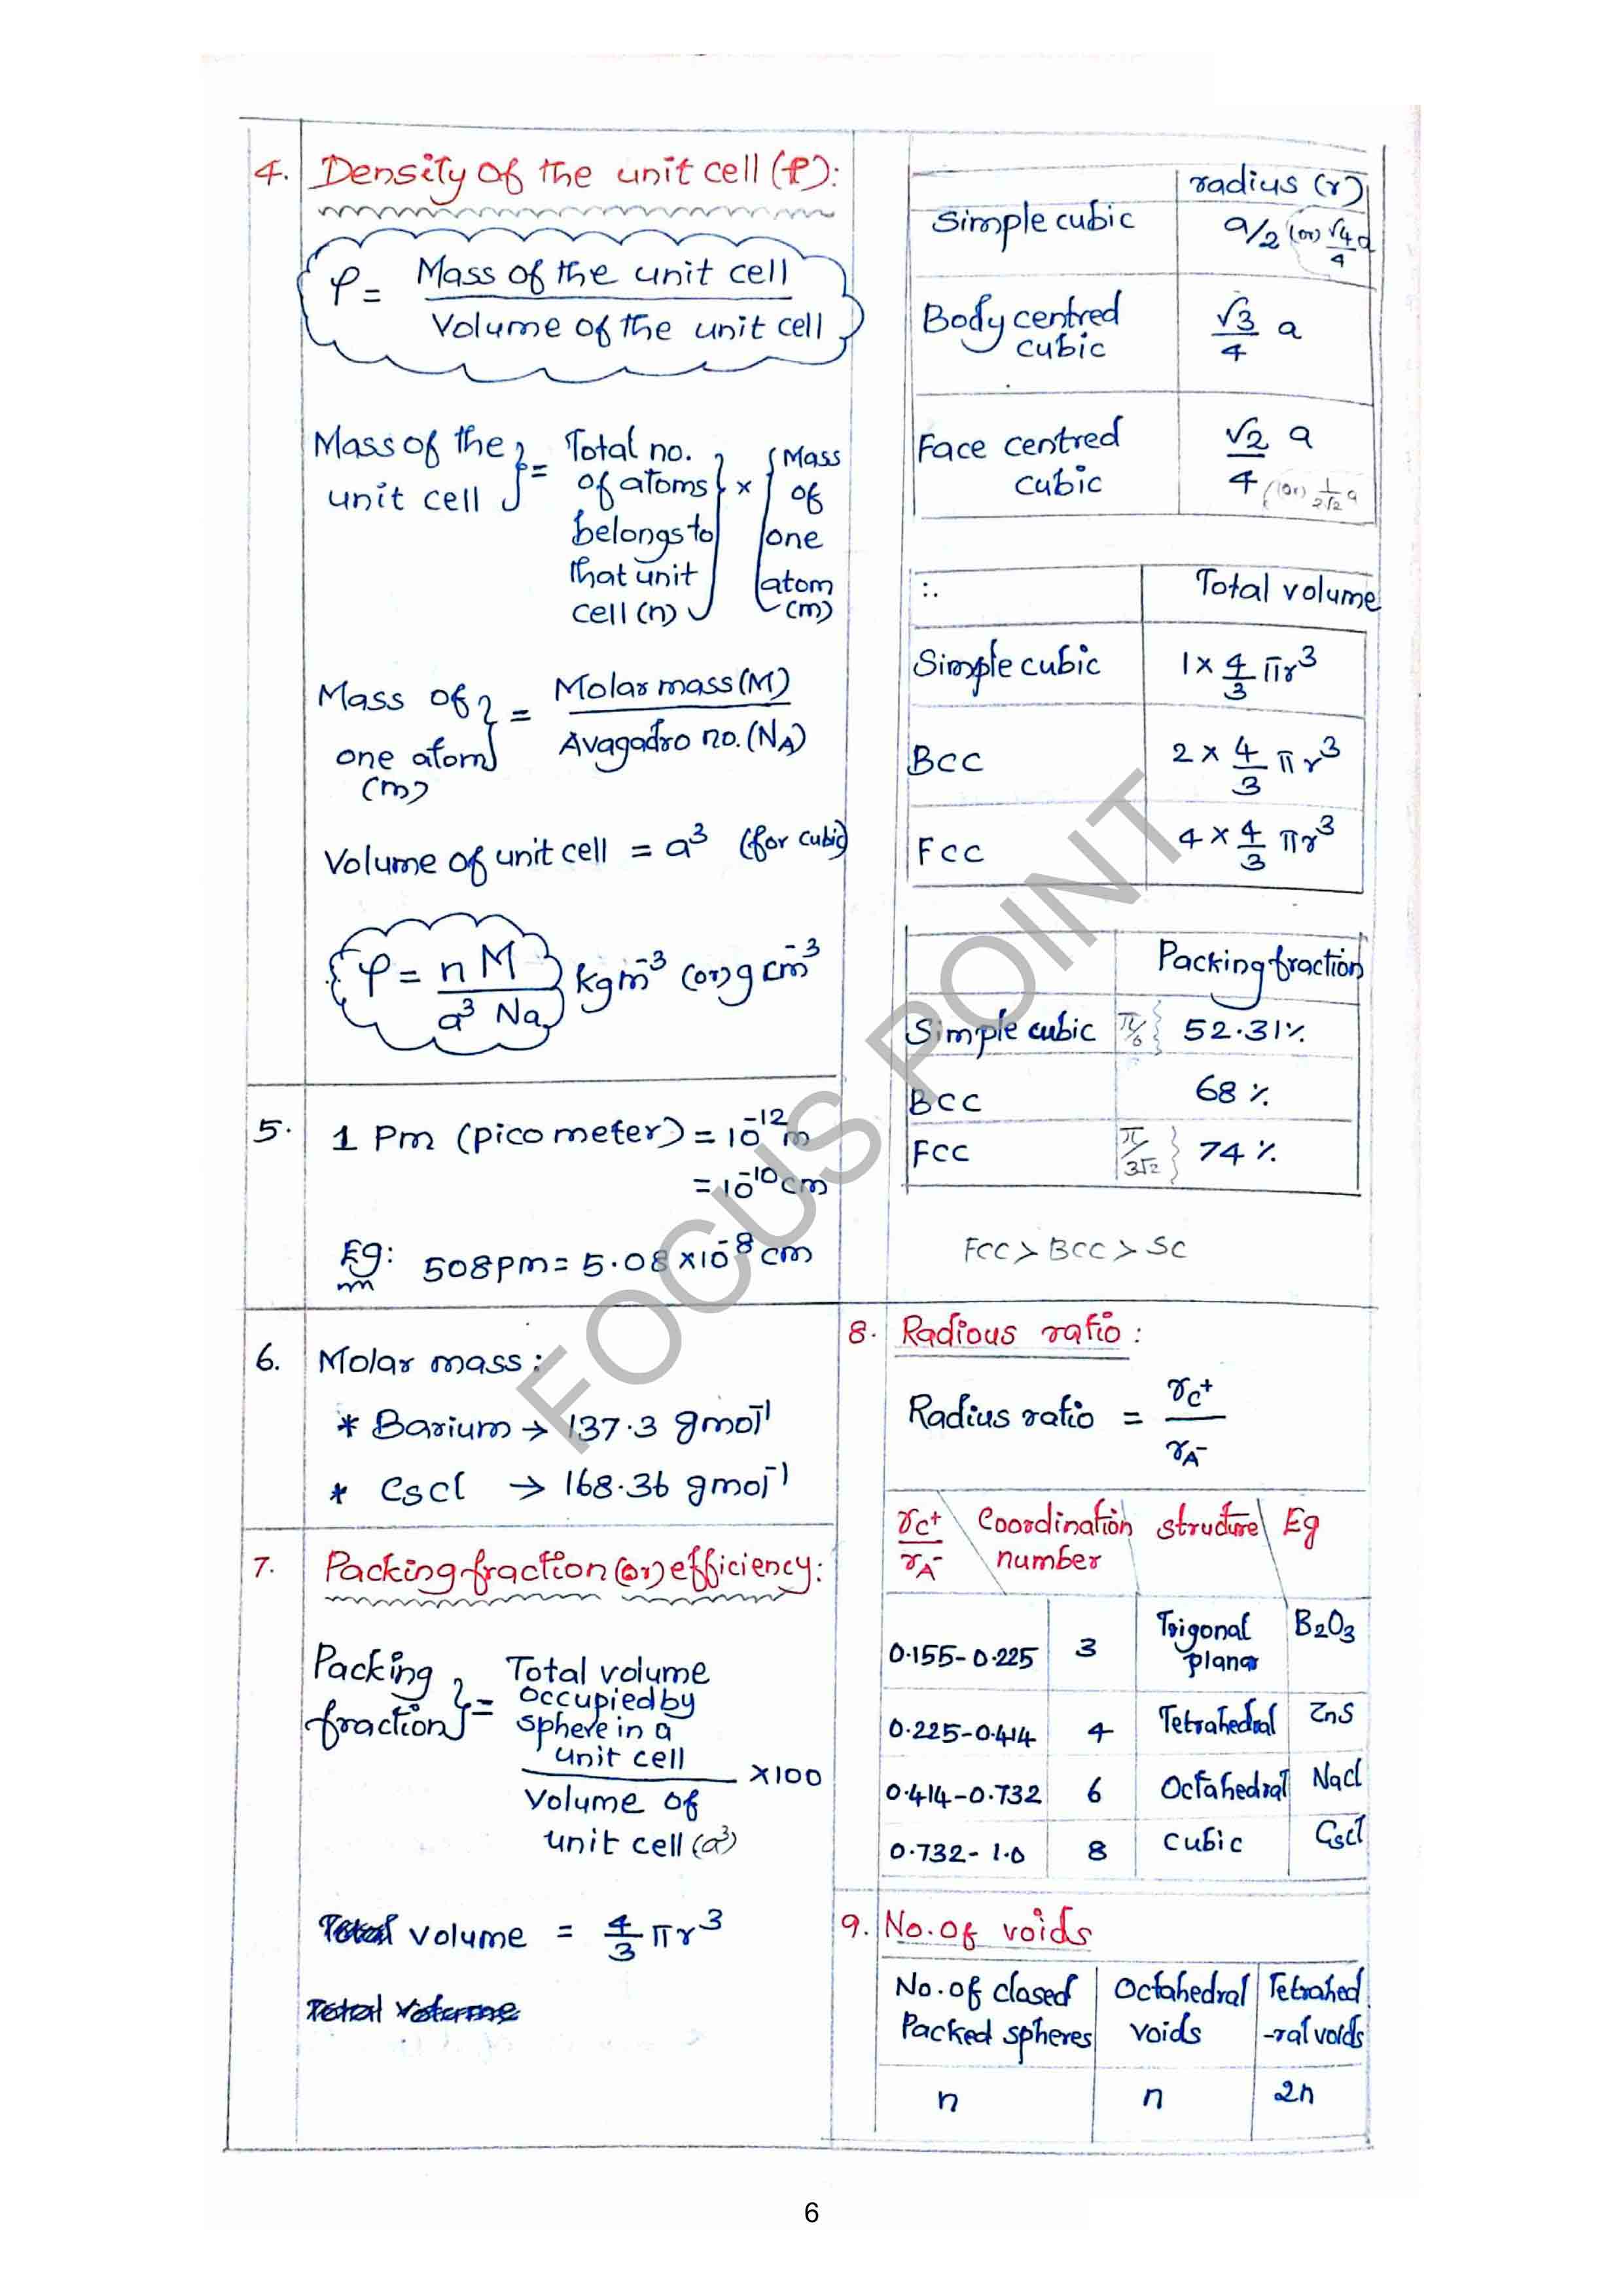 4. Density of the unit cell (ρ):
ρ = Mass of the unit cell / Volume of the unit cell
Mass of the unit cell } = Total no. of atoms belongs to that unit cell (n) } × { Mass of one atom (m)
Mass of one atom (m) } = Molar mass (M) / Avagadro no. (NA)
Volume of unit cell = a³ (for cubic)
ρ = n M / a³ Na kgm⁻³ (or) g cm⁻³
5. 1 Pm (pico meter) = 10⁻¹² m
= 10⁻¹⁰ cm
Eg: 508pm = 5.08 × 10⁻⁸ cm
6. Molar mass:
* Barium → 137.3 gmol⁻¹
* Cscl → 168.36 gmol⁻¹
7. Packing fraction (or) efficiency:
Packing fraction } = Total volume occupied by sphere in a unit cell / Volume of unit cell (a³) ×100
Total volume = 4/3 πr³
Total volume
radius (r)
Simple cubic a/2 (or) √4/4 a
Body centred cubic √3/4 a
Face centred cubic √2/4 a (or) 1/2√2 a
∴ Total volume
Simple cubic 1 × 4/3 πr³
BCC 2 × 4/3 πr³
FCC 4 × 4/3 πr³
Packing fraction
Simple cubic π/6 } 52.31%
BCC 68%
FCC π/3√2 } 74%
FCC > BCC > SC
8. Radious ratio:
Radius ratio = rC⁺ / rA⁻
rC⁺/rA⁻ Coordination number structure Eg
0.155-0.225 3 Trigonal planar B2O3
0.225-0.414 4 Tetrahedral ZnS
0.414-0.732 6 Octahedral Nacl
0.732-1.0 8 cubic Cscl
9. No. of voids
No. of closed Packed spheres Octahedral voids Tetrahed-ral voids
n n 2n
FOCUS POINT
6